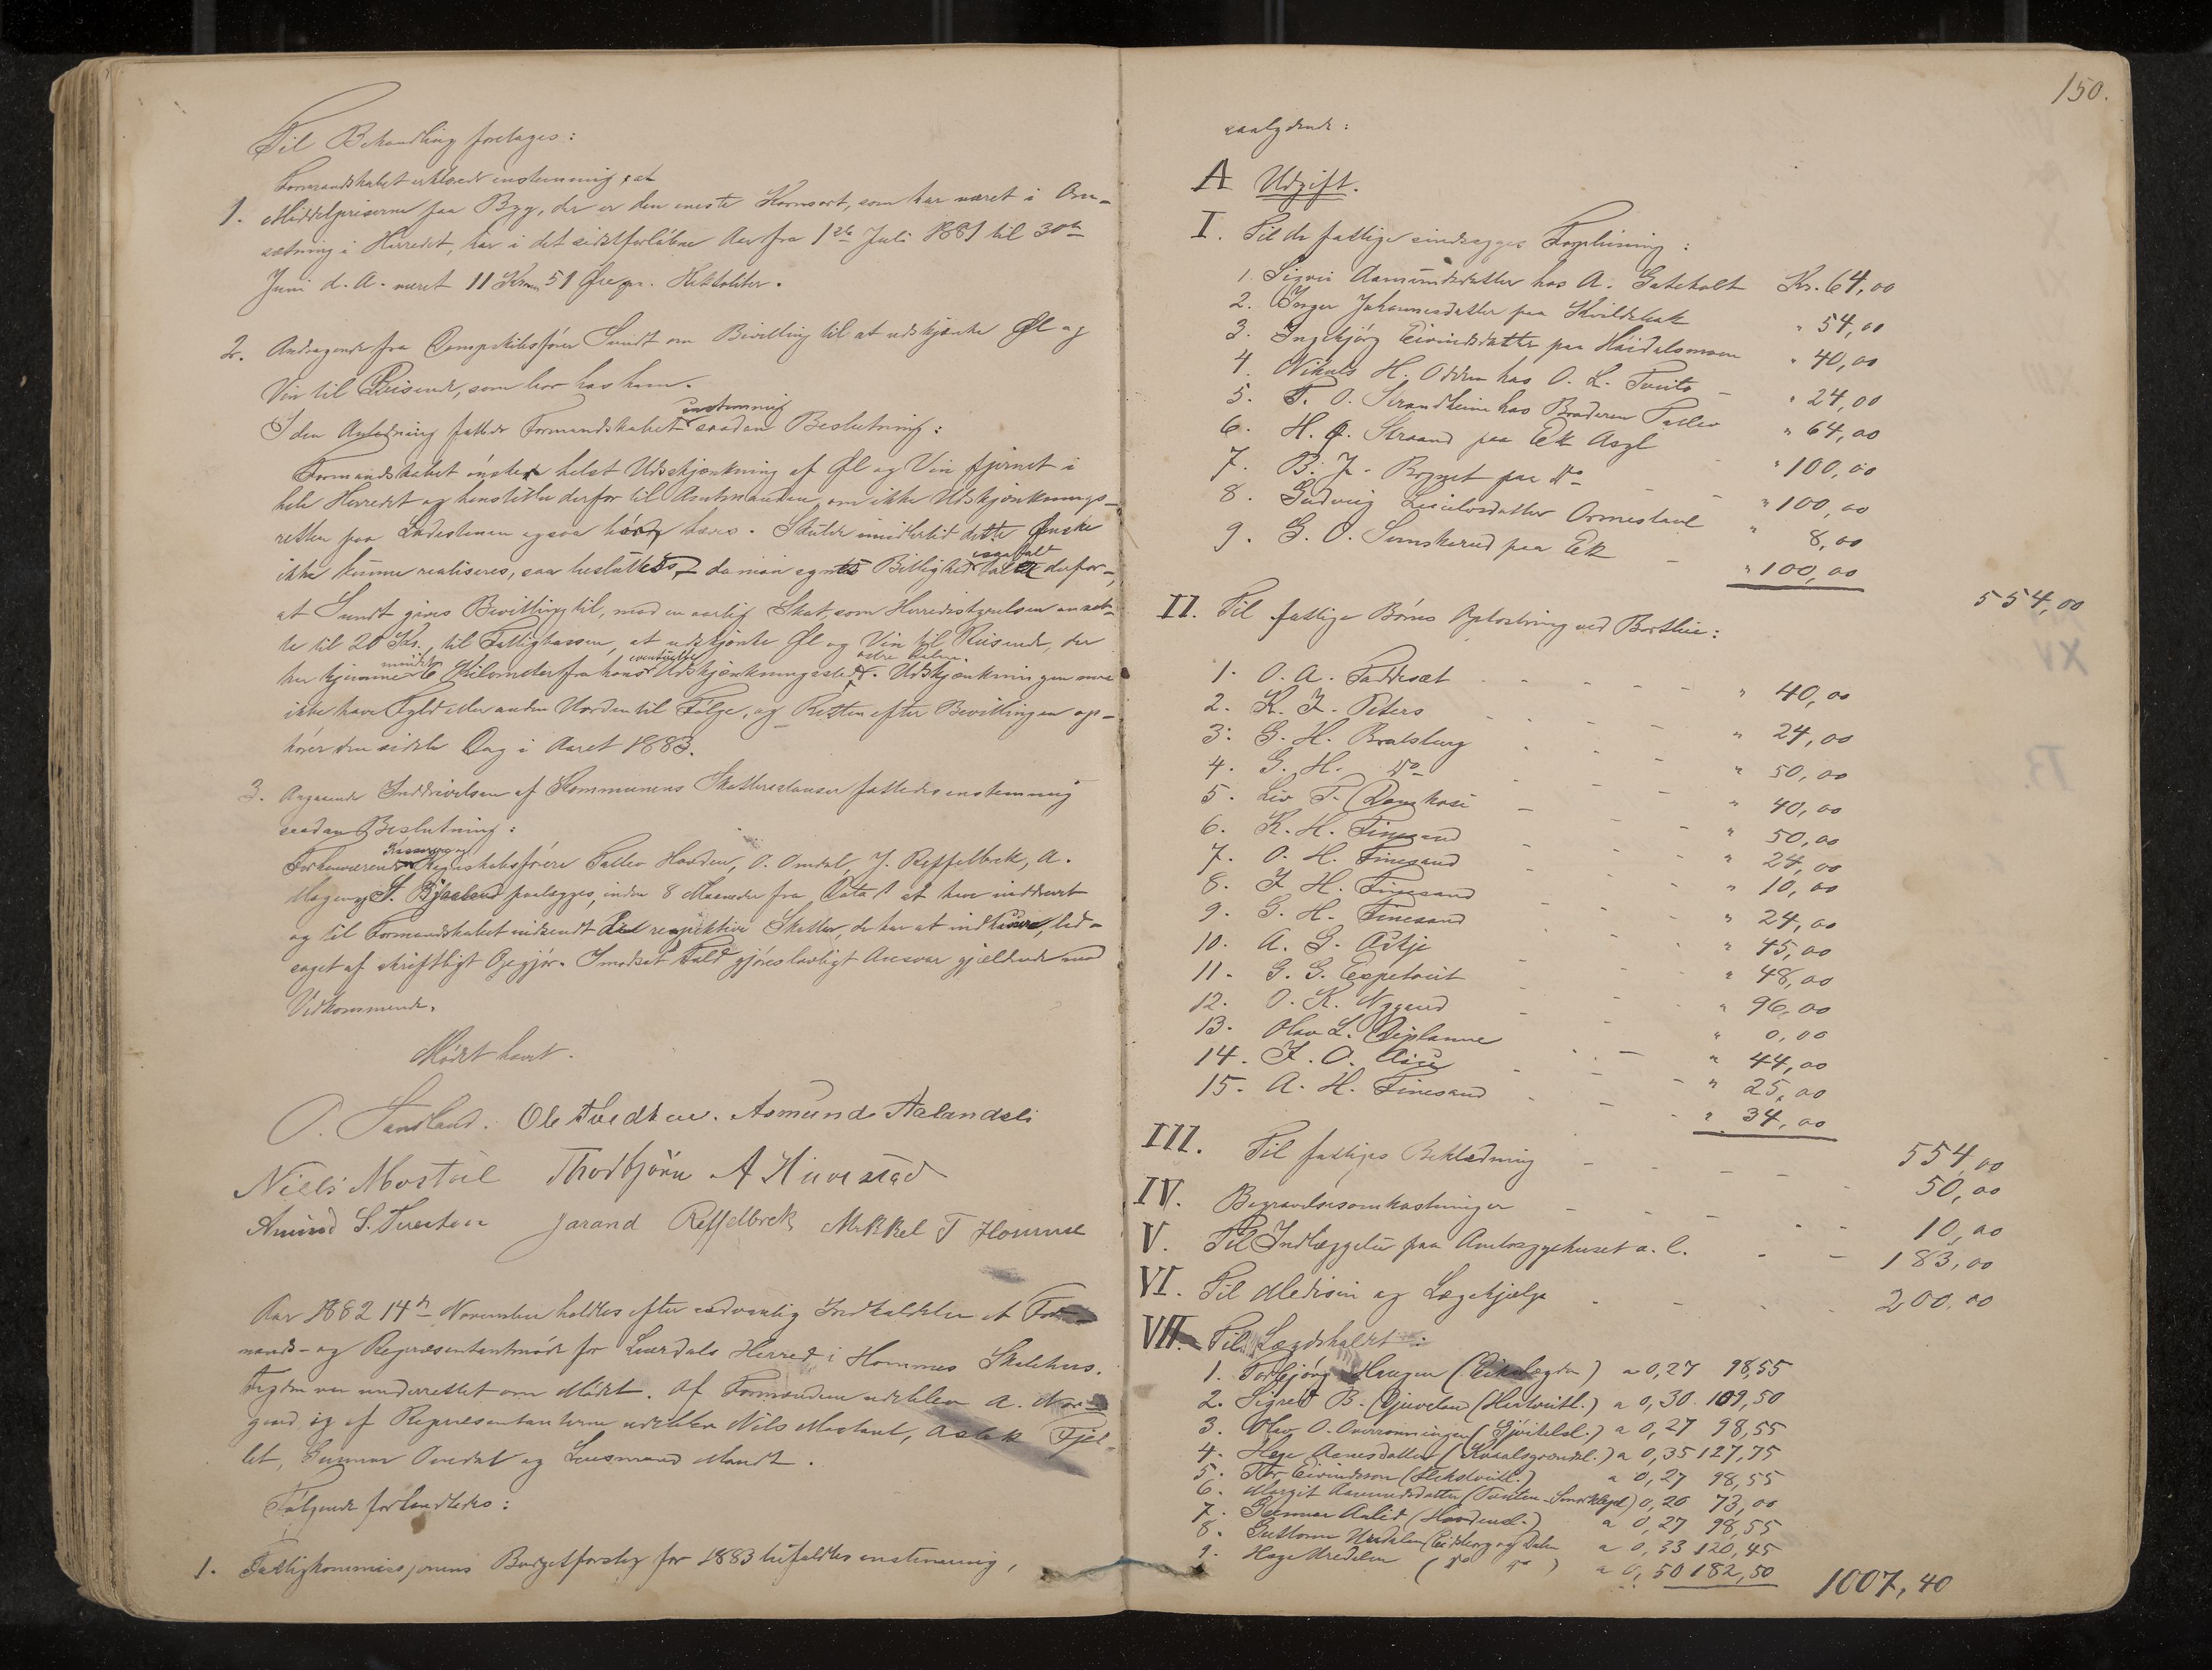 Til Behandling foretages:
Formandskabet erklærede enstemmig, at
1. Middelpriserne paa Byg, der er den eneste Kornsort, som har været i Om-
sætning i Herredet, har i det sidstforløbne Aar fra 1ste Juli 1881 til 30te
Juni d. A. været 11 Kroner 51 Øre pr. Hektoliter.
2. Andragende fra Dampskibsfører Sundt om Bevilling til at udskjænke Øl og
Vin til Reisende, som bor hos ham.
I den Anledning fattede Formandskabet enstemmig saadan Beslutning:
Formandskabet ønsker helst Udskjænkning af Øl og Vin fjernet i
hele Herredet og henstiller derfor til Amtmanden, om ikke Udskjænknings-
retten paa Ladestenen ogsaa hæves. Skulde imidlertid dette Ønske
ikke kunne realiseres, saa besluttes, da man synes Billighed isaafald taler derfor,
at Sundt gives Bevilling til, mod en aarlig Skat, som Herredsstyrelsen ansæt-
te til 20 Kr., til Fattigkassen, at udskjænke Øl og Vin til Reisende, der
har hjemme mindst 6 Kilometer fra hans eventuelle Udskjænkningssted. Udskjænkningen maa
ikke have Fyld eller anden Uorden til Følge, og Retten efter Bevillingen op-
hører den sidste Dag i Aaret 1883.
3. Angaaende Inddrivelsen af Kommunens Skatterestanser fattedes enstemmig
saadan Beslutning:
Forhenværende Regnskabsførere Tallev Hovden, O. Omdal, J. Reffelbek, A.
Mogen og S. paalægges, inden 8 Maaneder fra Dato at have inddrevet
og til Formandskabet indsendt respektive Skatter, de har at indkræve, led-
saget af skriftligt Opgjør. I modsat Fald gjøres lovligt Ansvar gjældende mod
Vedkommende.
Mødet hævet.
O. Sandland. Ole Tvedten. Asmund Aalandsli
Niels Mostøl Thorbjörn A Hiverstad
Amund S. Tveiten Jarand Reffelbek Mikkel T Homme
Aar 1882 14de November holdtes efter sedvanlig Indkaldelse et For-
mands- og Repræsentantmøde for Laardals Herred i Hommes Skolehus.
Fogden var underrettet om Mødet. Af Formændene udeblev A.
og af Repræsentanterne udeblev Nils Mostøl, Aslak Fjel-
let, Gunnar Omdal og Mandt.
Følgende forhandledes:
1. Fattigkommissionens Budgetforslag for 1883 bifaldtes enstemmig,
150.
saalydende:
A Udgift.
I. Til de fattiges Forpleining:
1. Signe Aamundsdatter hos A. Gateholt Kr. 64,00
2. Inger Johannesdatter paa Kvildebak " 54,00
3. Ingebjørg Eivindsdatter paa Høidalsmoen " 40,00
4. Nikuls H. Odden hos O. L. Tveito " 24,00
5. T. O. Strandheim hos Broderen Tallev " 64,00
6. H. G. Straand paa Ek Asyl " 100,00
7. B. J. Bognet paa do " 100,00
8. Gudveig Leivlovsdatter Ormestaul " 8,00
9. G. O. Sumskerud paa Ek " 100,00
554,00
II. Til fattige Børns Opfostring ved Bortleie:
1. O. A. Faddesæt " 40,00
2. K. J. Peters " 24,00
3. G. H. Bratsberg " 50,00
4. G. H. do " 40,00
5. Liv T. " 50,00
6. K. H. Finesand " 24,00
7. O. H. Finesand " 10,00
8. J. H. Finesand " 24,00
9. G. H. Finesand " 45,00
10. A. G. " 48,00
11. G. G. Espetveit " 96,00
12. O. K. Nygaard " 0,00
13. Olav L. " 44,00
14. J. O. " 25,00
15. A. H. Finesand " 34,00
554,00
III. Til fattiges Beklædning 50,00
IV. Begravelsesomkostninger 10,00
V. Til Indlæggelse paa Amtssygehuset a. l. 183,00
VI. Til Medisin og Lægehjælp 200,00
VII. Til Lægdsholdet:
1. Torbjørg Haugen (Eikelægden) a 0,27 98,55
2. Sigrid B. Djuveland (Hertveitl.) a 0,30 109,50
3. Olav O. a 0,27 98,55
4. Hæge Aanesdatter a 0,35 127,75
5. Tor Eivindsson a 0,27 98,55
6. Margit Aamundsdatter a 0,20 73,00
7. Gunnar Aalid (Hovdenl.) a 0,27 98,55
8. Guttorm Uredalen (Eidsborg og Dalen a 0,33 120,45
9. Hæge Uredalen (do do) a 0,50 182,50
1007,40